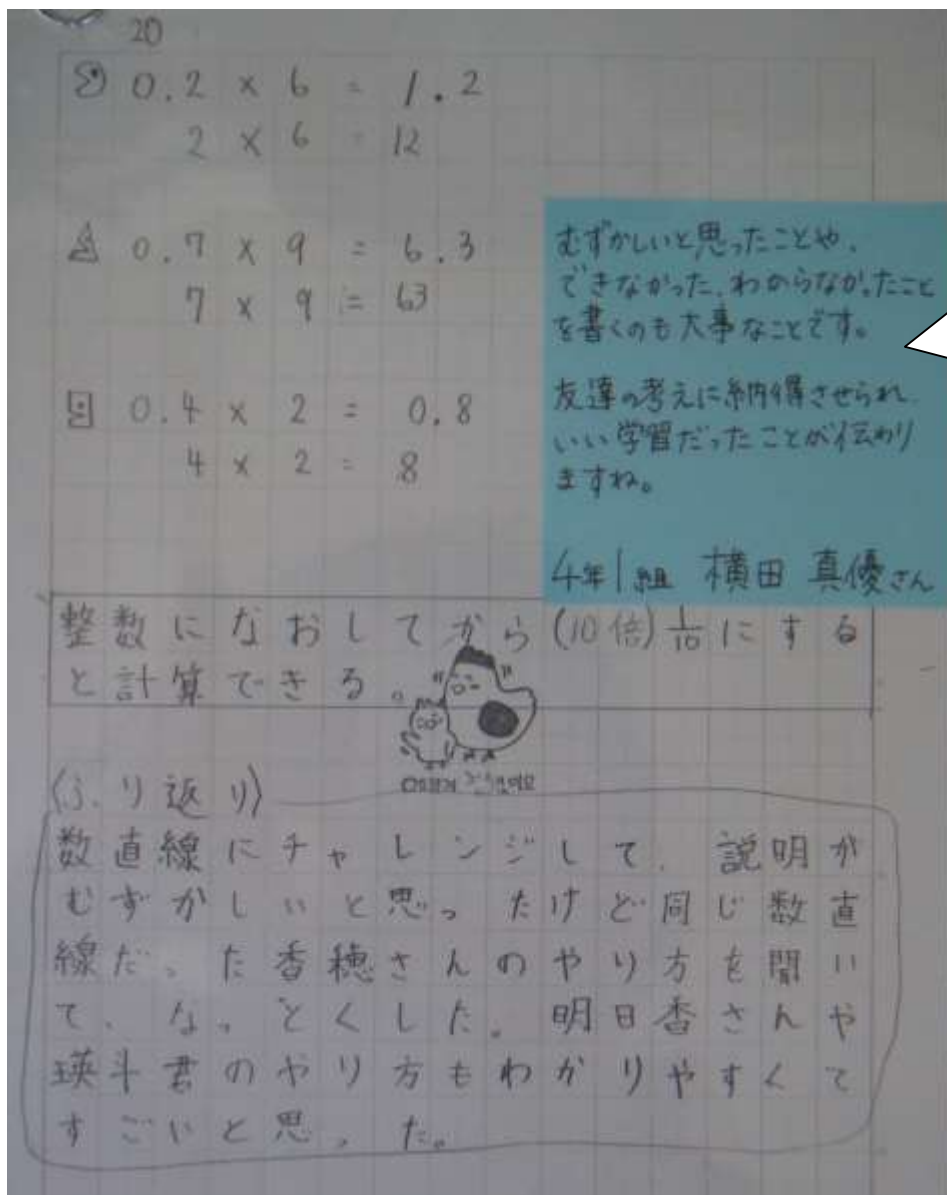 20
あ 0.2 × 6 = 1.2
2 × 6 = 12
0.7 × 9 = 6.3
7 × 9 = 63
0.4 × 2 = 0.8
4 × 2 = 8
むずかしいと思ったことや、
できなかった、わからなかったこと
を書くのも大事なことです。
友達の考えに納得させられ、
いい学習だったことが伝わり
ますね。
4年1組 横田 真優さん
整数になおしてから(10倍)1/10にする
と計算できる。
〈ふり返り〉
数直線にチャレンジして、説明が
むずかしいと思ったけど同じ数直
線だった香穂さんのやり方を聞い
て、なっとくした。明日香さんや
瑛斗君のやり方もわかりやすくて
すごいと思った。